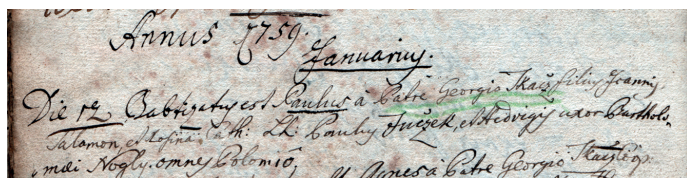 Annus 1759.
Januarius.
Die 12 Babtizatus est Paulus à Patre Georgio Tkacz filius Joannis
Salamon, et Rosina Cath: LL: Paulus Juczek, et Hedvigis uxor Bartholo-
mæi Nogly. omnes Polomiô,
Agnes à Patre Georgio Tkacz